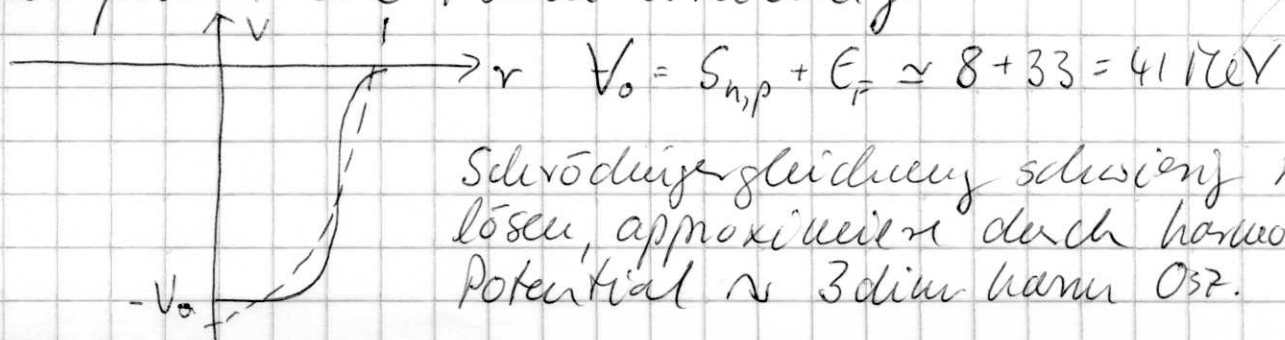 V
r V₀ = S_{n,p} + E_F ≃ 8 + 33 = 41 MeV
Schrödingergleichung schwierig
lösen, approximiere durch harmo
Potential ~ 3dim harm Osz.
-V₀